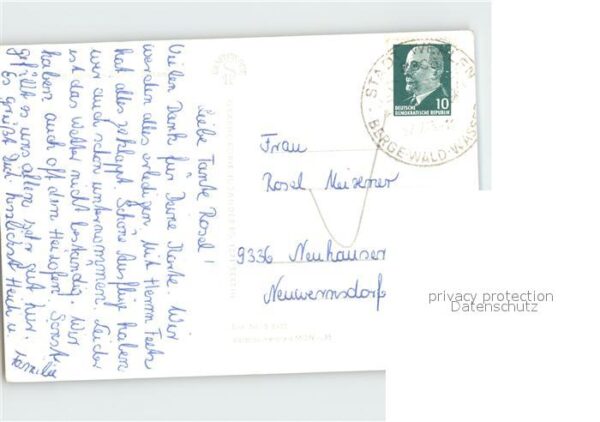 Liebe Tante Rosel!
Vielen Dank für Deine Karte. Wir
werden alles erledigen. Mit Herrn
hat alles geklappt. Schöne Ausflüge haben
wir auch schon unternommen. Leider
ist das Wetter nicht beständig. Wir
haben auch oft den Heizofen. Sonst
gefällt es uns allen sehr gut hier.
Es grüßt Dich herzlichst u. Familie
DEUTSCHE
DEMOKRATISCHE REPUBLIK
10
BERGE-WALD-WASSER
Frau
Rosel Meixner
9336 Neuhausen
Neuwernsdorf
privacy protection
Datenschutz